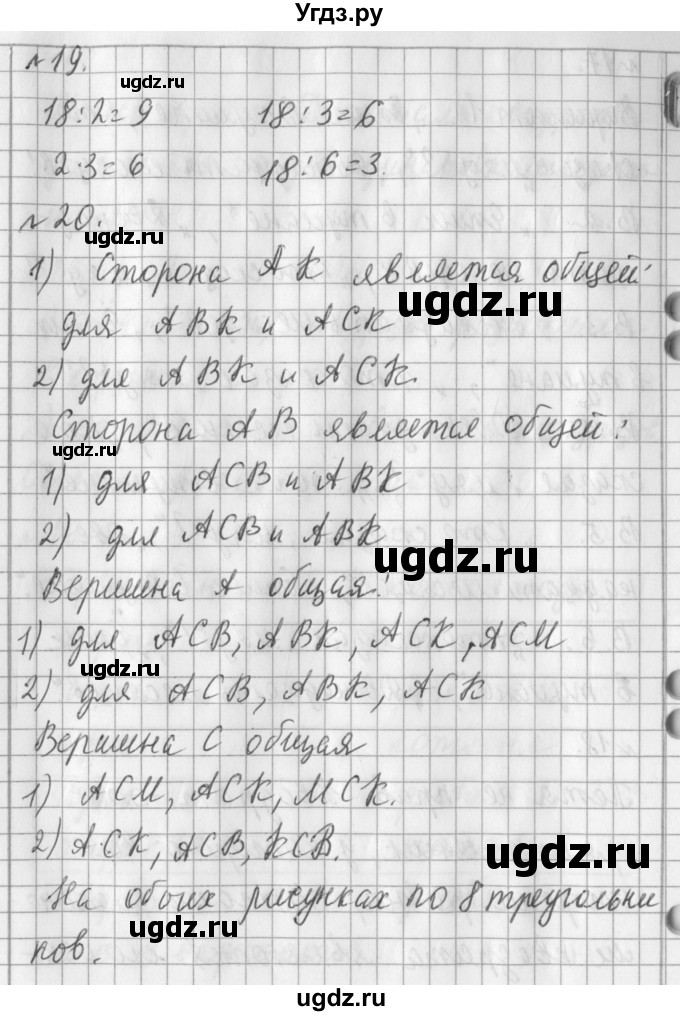 Угдз.ру
№ 19.
ugdz.ru
18:2=9 18:3=6
2·3=6 18:6=3.
№ 20.
ugdz.ru
1) Сторона АК является общей:
ugdz.ru
для АВК и АСК
2) для АВК и АСК.
Сторона АВ является общей:
ugdz.ru
1) для АСВ и АВК
2) для АСВ и АВК
ugdz.ru
Вершина А общая:
1) для АСВ, АВК, АСК, АСМ
ugdz.ru
2) для АСВ, АВК, АСК
Вершина С общая
1) АСМ, АСК, МСК.
2) АСК, АСВ, КСВ.
ugdz.ru
На обоих рисунках по 8 треугольни
ugdz.ru
ков.
ugdz.ru